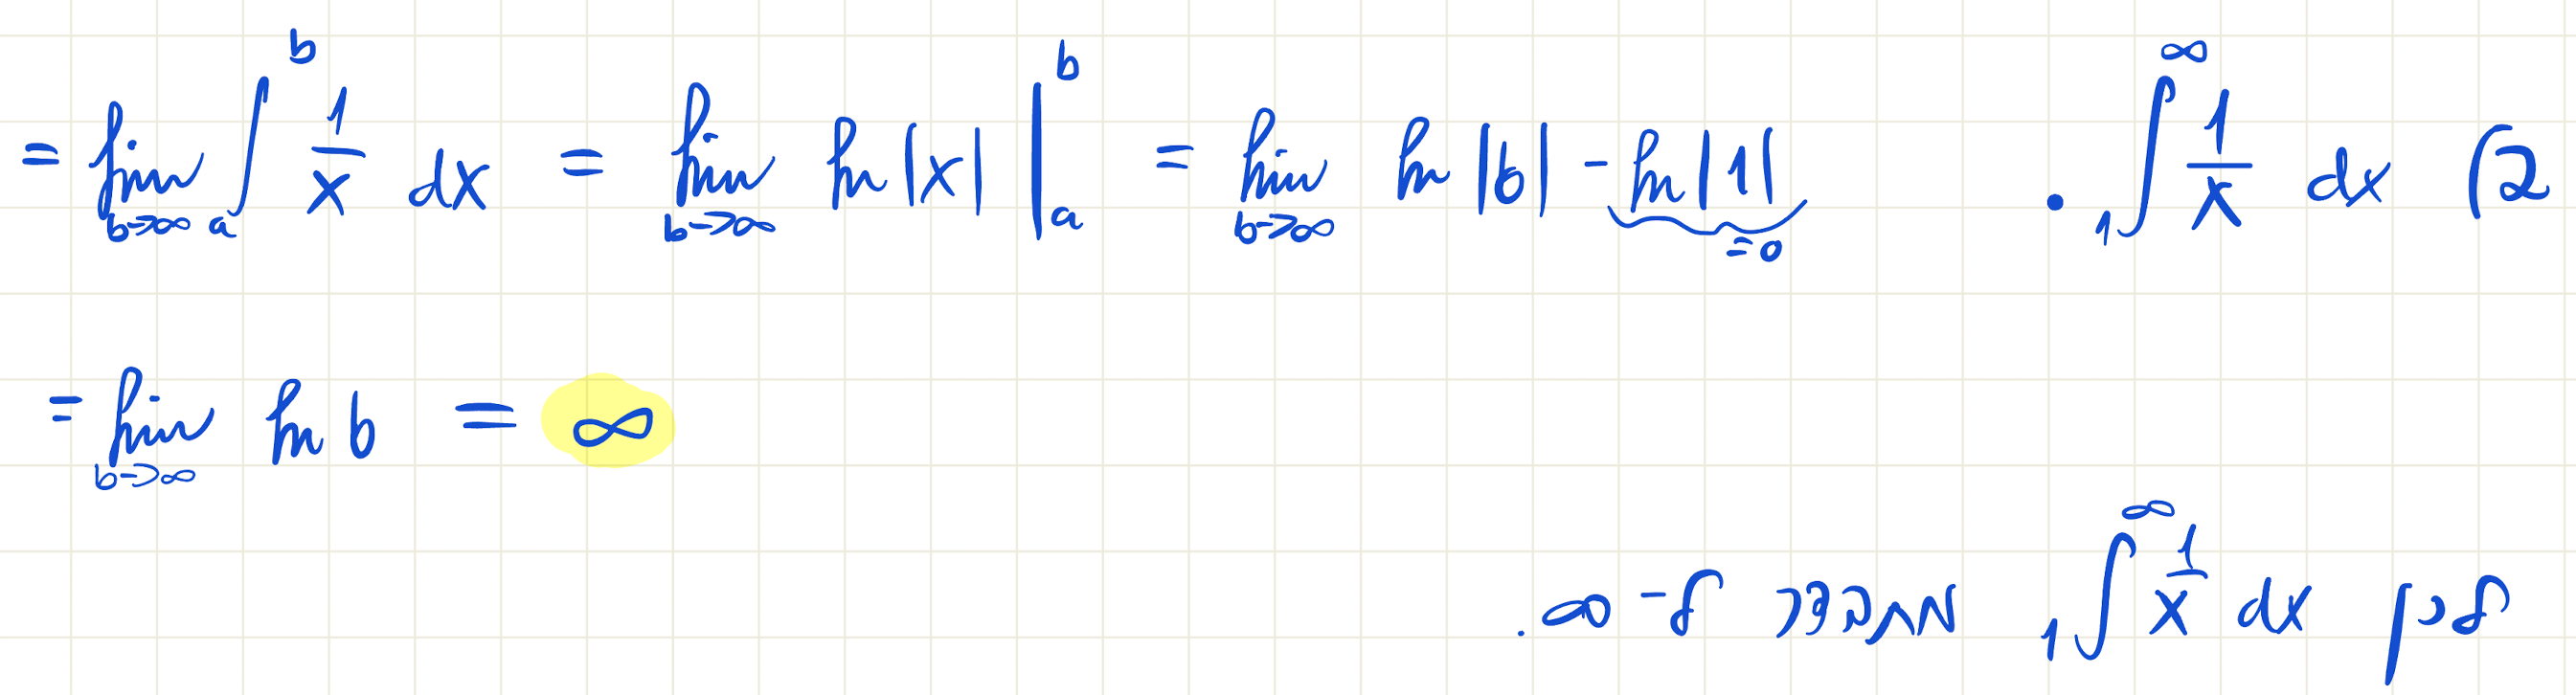 2) $\int_1^\infty \frac{1}{x} dx$ . $= \lim_{b \to \infty} \int_a^b \frac{1}{x} dx = \lim_{b \to \infty} \ln|x| \Big|_a^b = \lim_{b \to \infty} \ln|b| - \underbrace{\ln|1|}_{=0}$
$= \lim_{b \to \infty} \ln b = \infty$
לכן $\int_1^\infty \frac{1}{x} dx$ מתבדר ל- $\infty$.